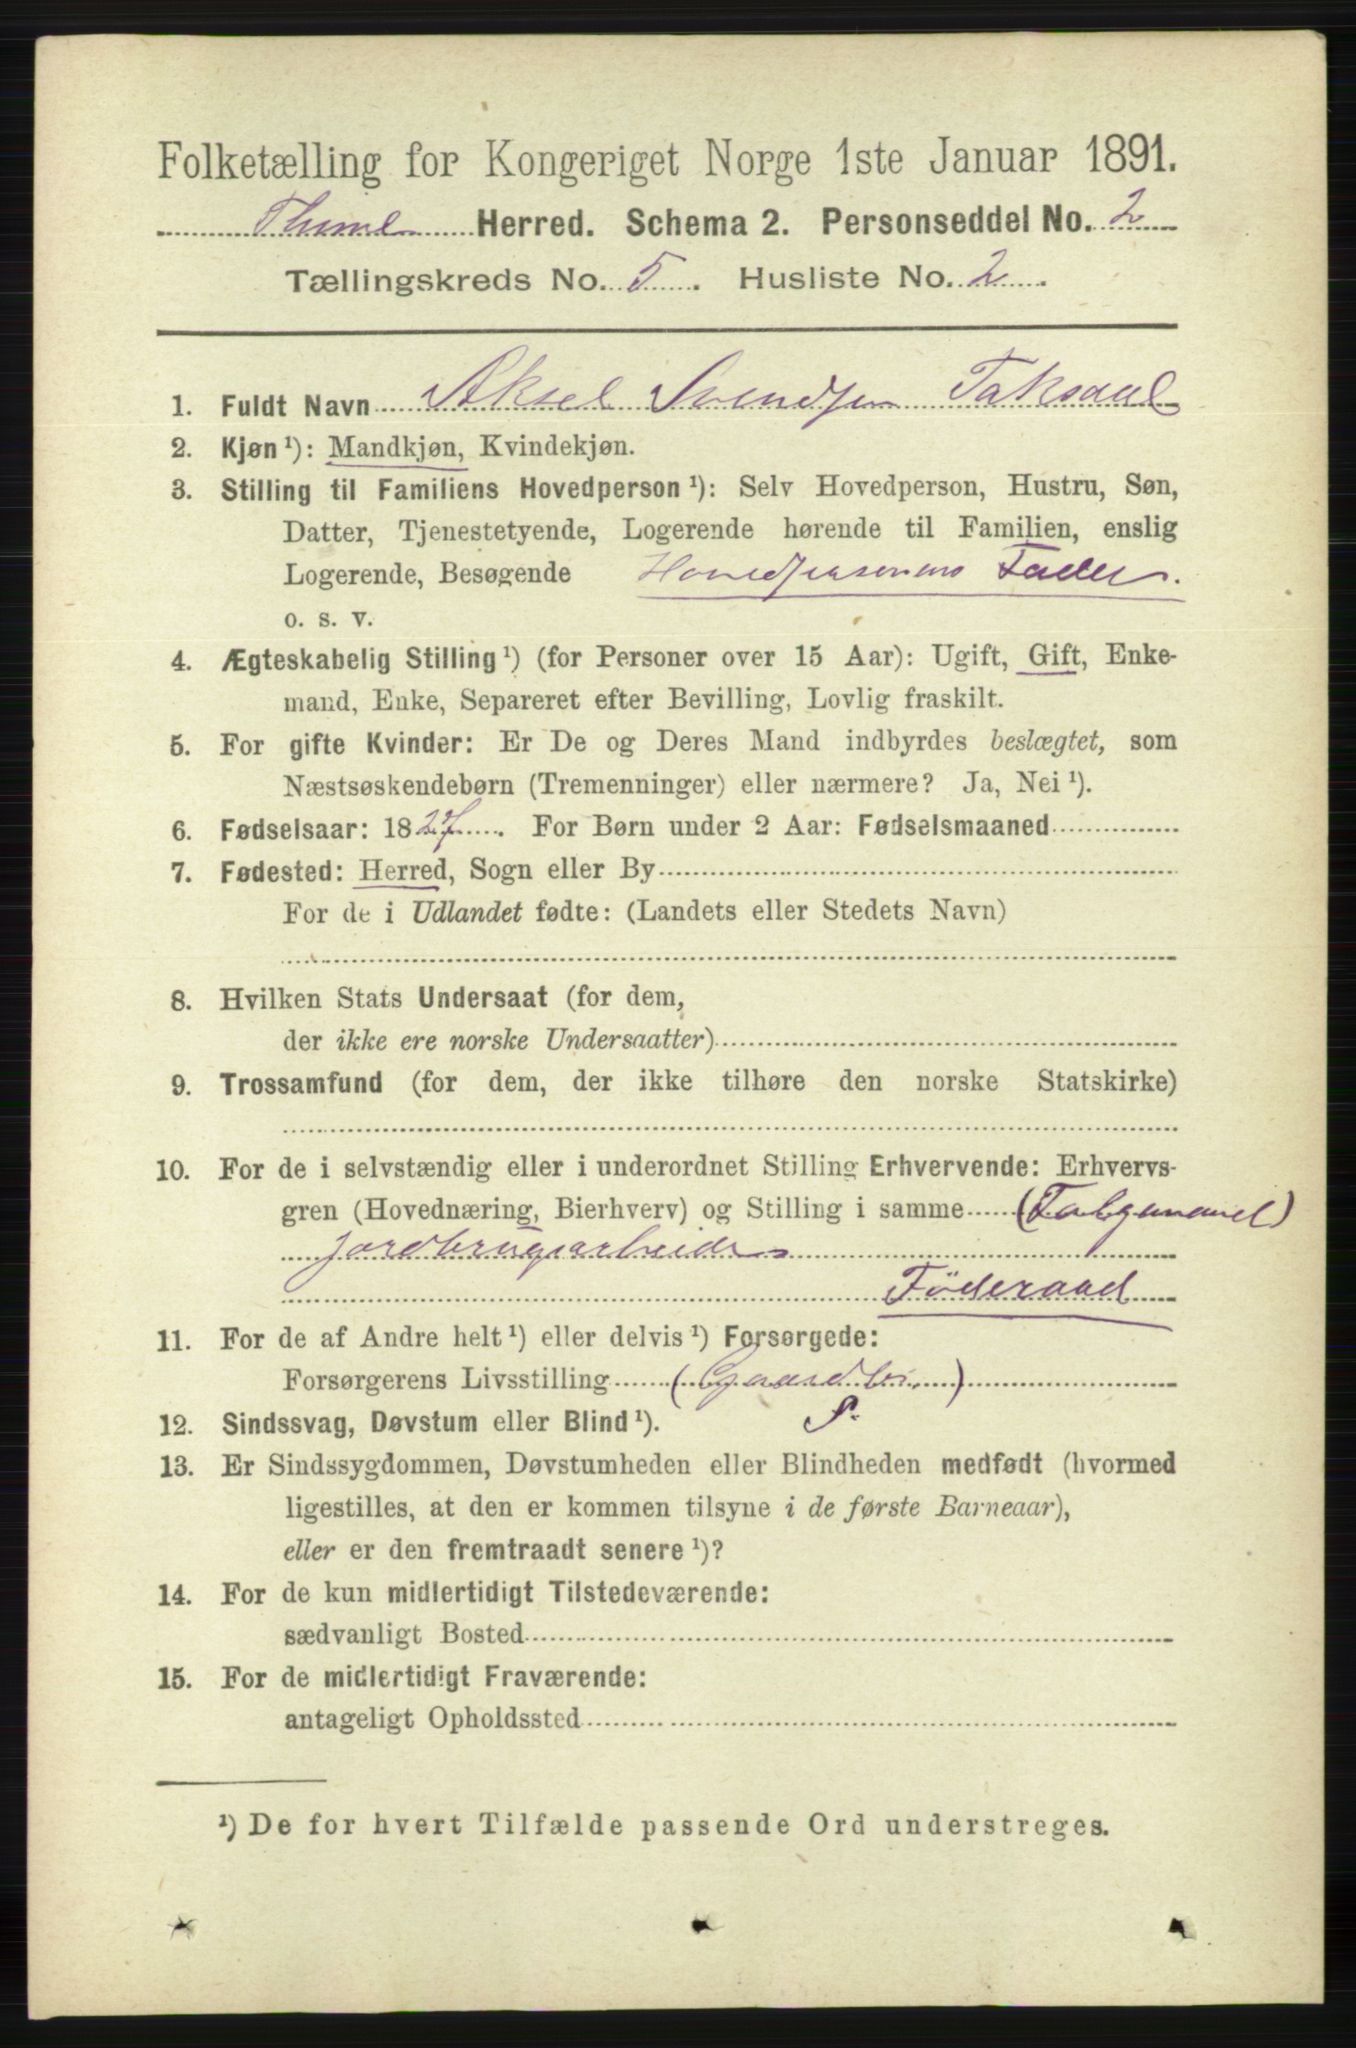 Folketælling for Kongeriget Norge 1ste Januar 1891.
Thime Herred. Schema 2. Personseddel No. 2
Tællingskreds No. 5. Husliste No. 2.
1. Fuldt Navn Aksel Svendsen Taksdal
2. Kjøn ¹): Mandkjøn, Kvindekjøn.
3. Stilling til Familiens Hovedperson ¹): Selv Hovedperson, Hustru, Søn,
Datter, Tjenestetyende, Logerende hørende til Familien, enslig
Logerende, Besøgende Hovedpersonens Fader.
o. s. v.
4. Ægteskabelig Stilling ¹) (for Personer over 15 Aar): Ugift, Gift, Enke-
mand, Enke, Separeret efter Bevilling, Lovlig fraskilt.
5. For gifte Kvinder: Er De og Deres Mand indbyrdes beslægtet, som
Næstsøskendebørn (Tremenninger) eller nærmere? Ja, Nei ¹).
6. Fødselsaar: 1827. For Børn under 2 Aar: Fødselsmaaned
7. Fødested: Herred, Sogn eller By
For de i Udlandet fødte: (Landets eller Stedets Navn)
8. Hvilken Stats Undersaat (for dem,
der ikke ere norske Undersaatter)
9. Trossamfund (for dem, der ikke tilhøre den norske Statskirke)
10. For de i selvstændig eller i underordnet Stilling Erhvervende: Erhvervs-
gren (Hovednæring, Bierhverv) og Stilling i samme (Folgemand)
jordbrugsarbeide
Föderaad
11. For de af Andre helt ¹) eller delvis ¹) Forsørgede:
Forsørgerens Livsstilling (Gaardbr.)
12. Sindssvag, Døvstum eller Blind ¹). S.
13. Er Sindssygdommen, Døvstumheden eller Blindheden medfødt (hvormed
ligestilles, at den er kommen tilsyne i de første Barneaar),
eller er den fremtraadt senere ¹)?
14. For de kun midlertidigt Tilstedeværende:
sædvanligt Bosted
15. For de midlertidigt Fraværende:
antageligt Opholdssted
¹) De for hvert Tilfælde passende Ord understreges.